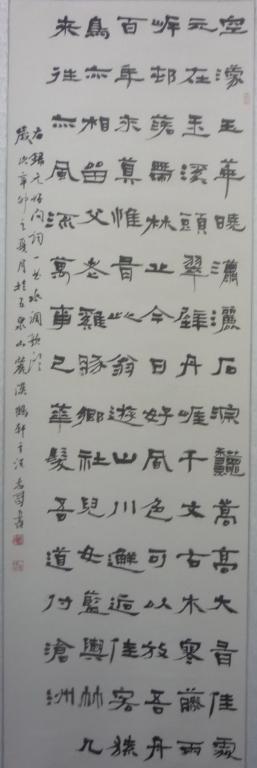 空濛玉華曉瀟灑石淙龝嵩高大有佳處
元在玉溪頭翠壁丹崖千丈古木寒藤兩
岸邨落帶林丘今日好風色可以放吾舟
百年來算惟有此翁遊山川邂逅佳客猿
鳥亦相留父老雞豚鄉社兒女籃輿竹几
來往亦風流萬事已華髮吾道付滄洲
右錄元好問詞一首水調歌頭
歲次辛卯之夏月於玉泉山麓漢鶴軒主